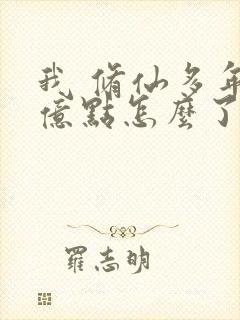 我 脩仙多年
億點怎麼了
羅志明